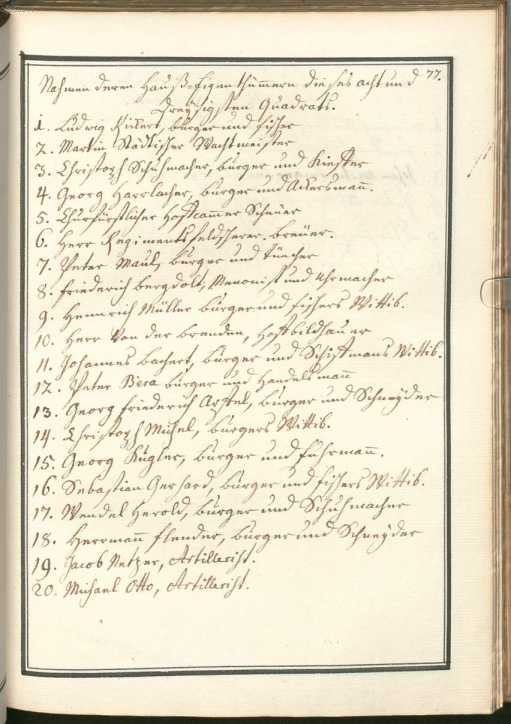 77.
Nahmen deren Hauß-Eigenthümmern dieses acht und
Dreysigsten Quadrats.
1. Ludwig Rikert, burger und fischer
2. Martin Städtischer Wachtmeister
3. Christoph Schuhmacher, burger und Kieffer
4. Georg Harrlacher, burger und Ackersmañ.
5. Churfürstlicher Hoffcammer Scheuer
6. Herr Regiments feldscherer breuer.
7. Peter Maul, burger und Tüncher
8. friederich bergdolt, Menonist und Uhrmacher
9. Heinrich Müller burger und fischers Wittib.
10. Herr Von der branden, Hoffbildhauer
11. Johannes bachert, burger und Schiffmans Wittib.
12. Peter Bera burger und Handelsmañ
13. Georg friederich Artzel, burger und Schneyder
14. Christoph Michel, burgers Wittib.
15. Georg Kugler, burger und fuhrmañ.
16. Sebastian Gerhard, burger und fischers Wittib.
17. Wendel Herold, burger und Schuhmacher
18. Herrmañ flender, burger und Schneyder
19. Jacob Netzer, Artillerist.
20. Michael Otto, Artillerist.